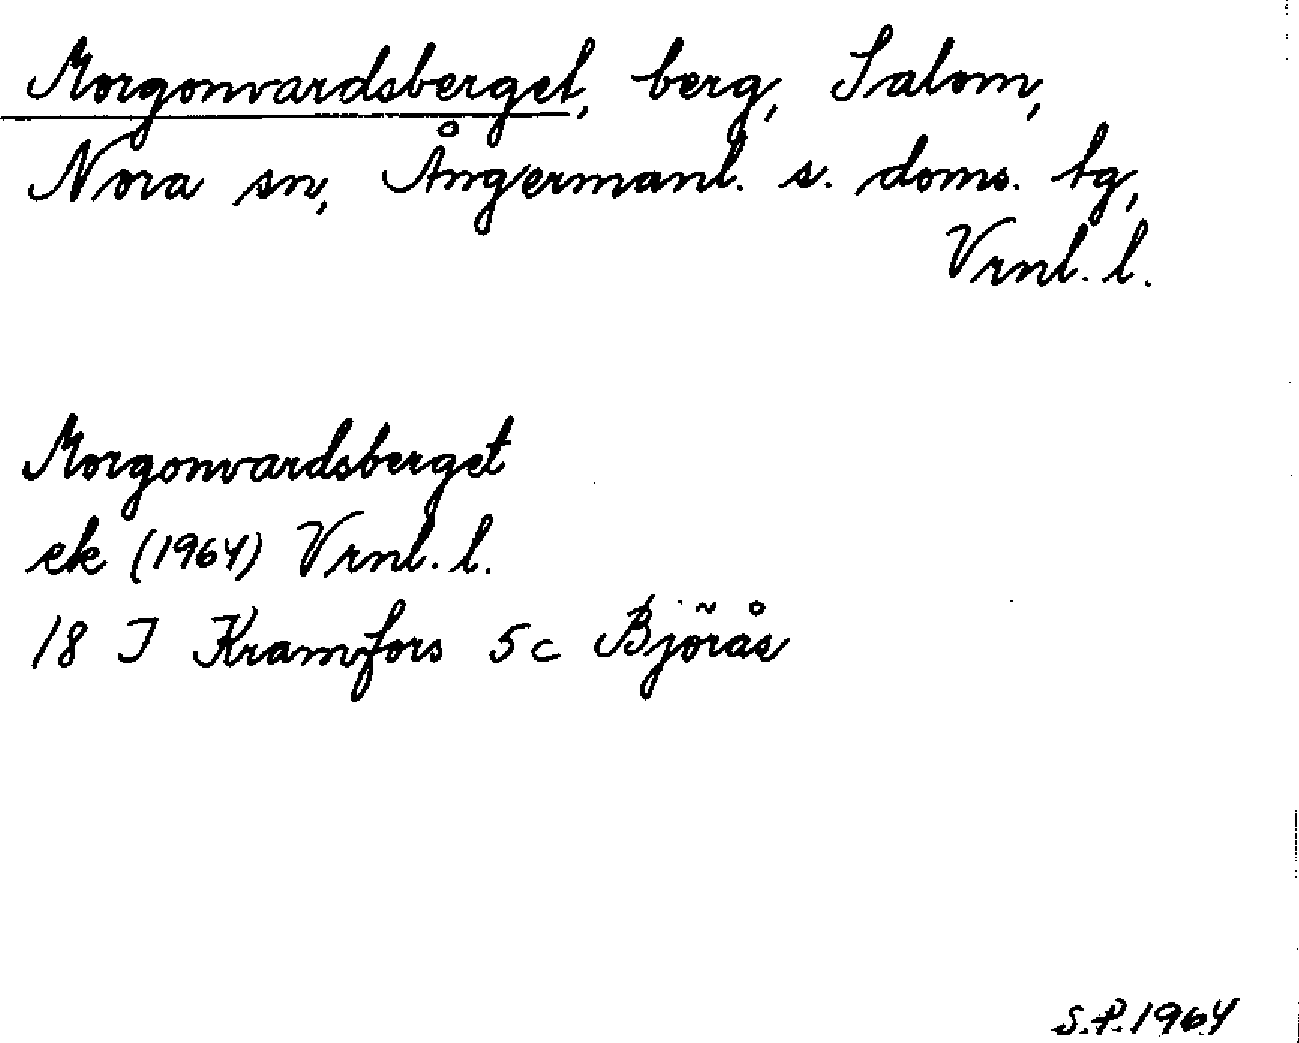 Morgonvardsberget, berg, Salom,
Nora sn, Ångermanl. s. doms. tg,
Vrnl. l.
Morgonvardsberget
ek (1964) Vrnl. l.
18 I Kramfors 5 c Björås
S.P. 1964